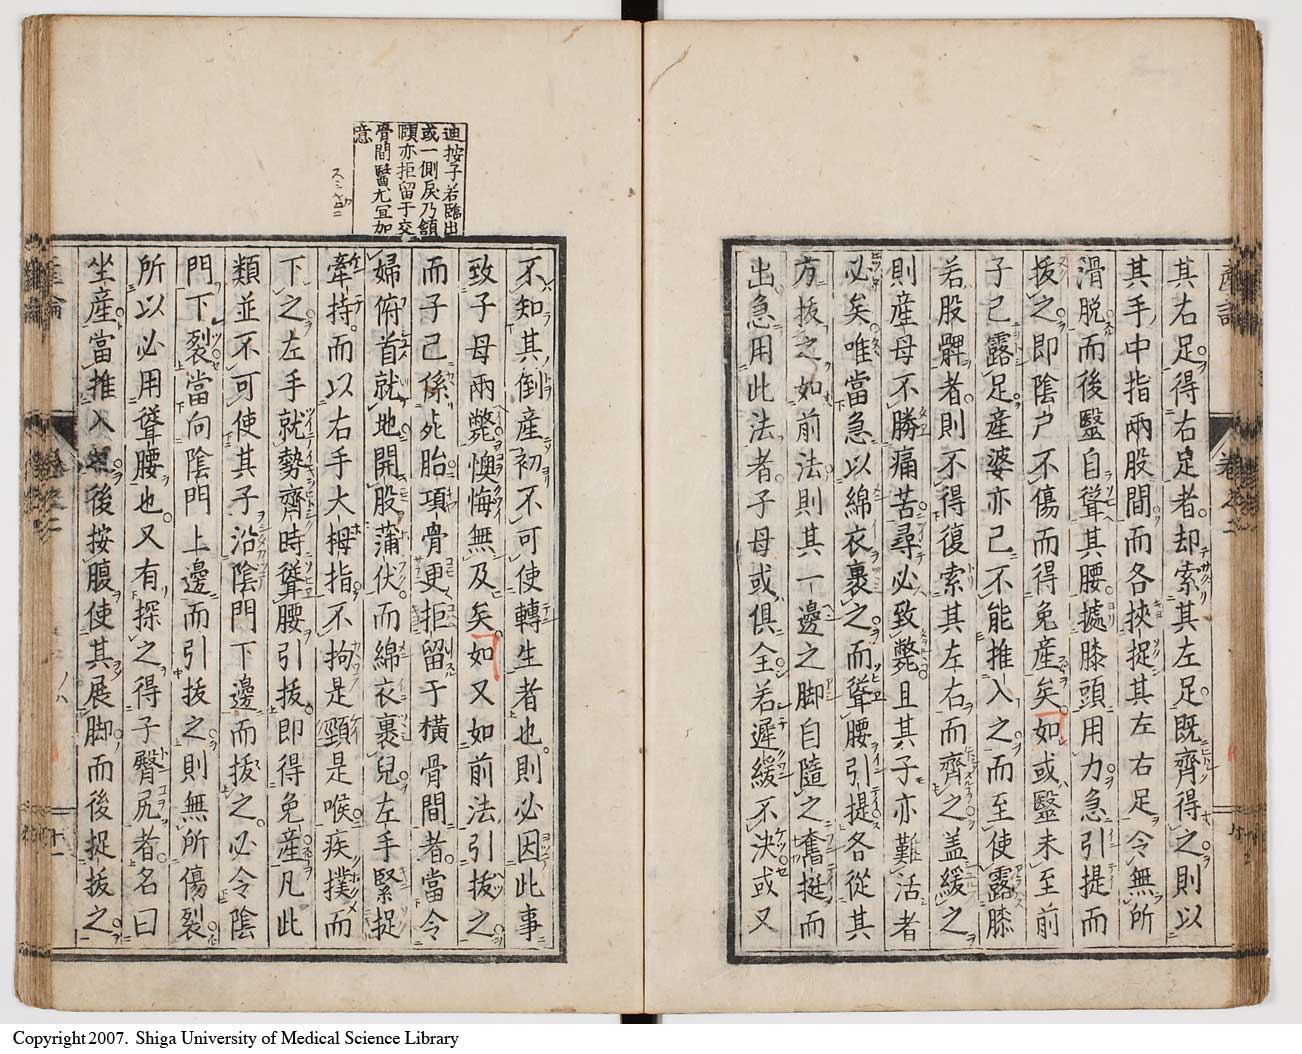 其右足得右足者却索其左足既齊得之則以
其手中指兩股間而各挾捉其左右足令無所
滑脱而後毉自聳其腰㨿膝頭用力急引提而
拔之即陰户不傷而得免産矣如或毉未至前
子已露足産婆亦已不能推入之而至使露膝
若股髀者則不得復索其左右而齊之盖緩之
則産母不勝痛苦尋必致斃且其子亦難活者
必矣唯當急以綿衣裹之而聳腰引提各從其
方拔之如前法則其一邊之脚自隨之奮挺而
出急用此法者子母或俱全若遲緩不決或又
迪按子若臨出
或一側戾乃頷
頤亦拒留于交
骨間毉尤冝加
意
不知其倒産初不可使轉生者也則必因此事
致子母兩斃懊悔無及矣如又如前法引拔之
而子已係死胎項骨更拒留于橫骨間者當令
婦俯首就地開股蒲伏而綿衣裹兒左手緊捉
牽持而以右手大栂指不拘是頸是喉疾撲而
下之左手就勢齊時聳腰引拔即得免産凡此
類並不可使其子沿陰門下邊而拔之必令陰
門下裂當向陰門上邊而引拔之則無所傷裂
所以必用聳腰也又有探之得子臀尻者名曰
坐産當推入後按腹使其展脚而後捉拔之